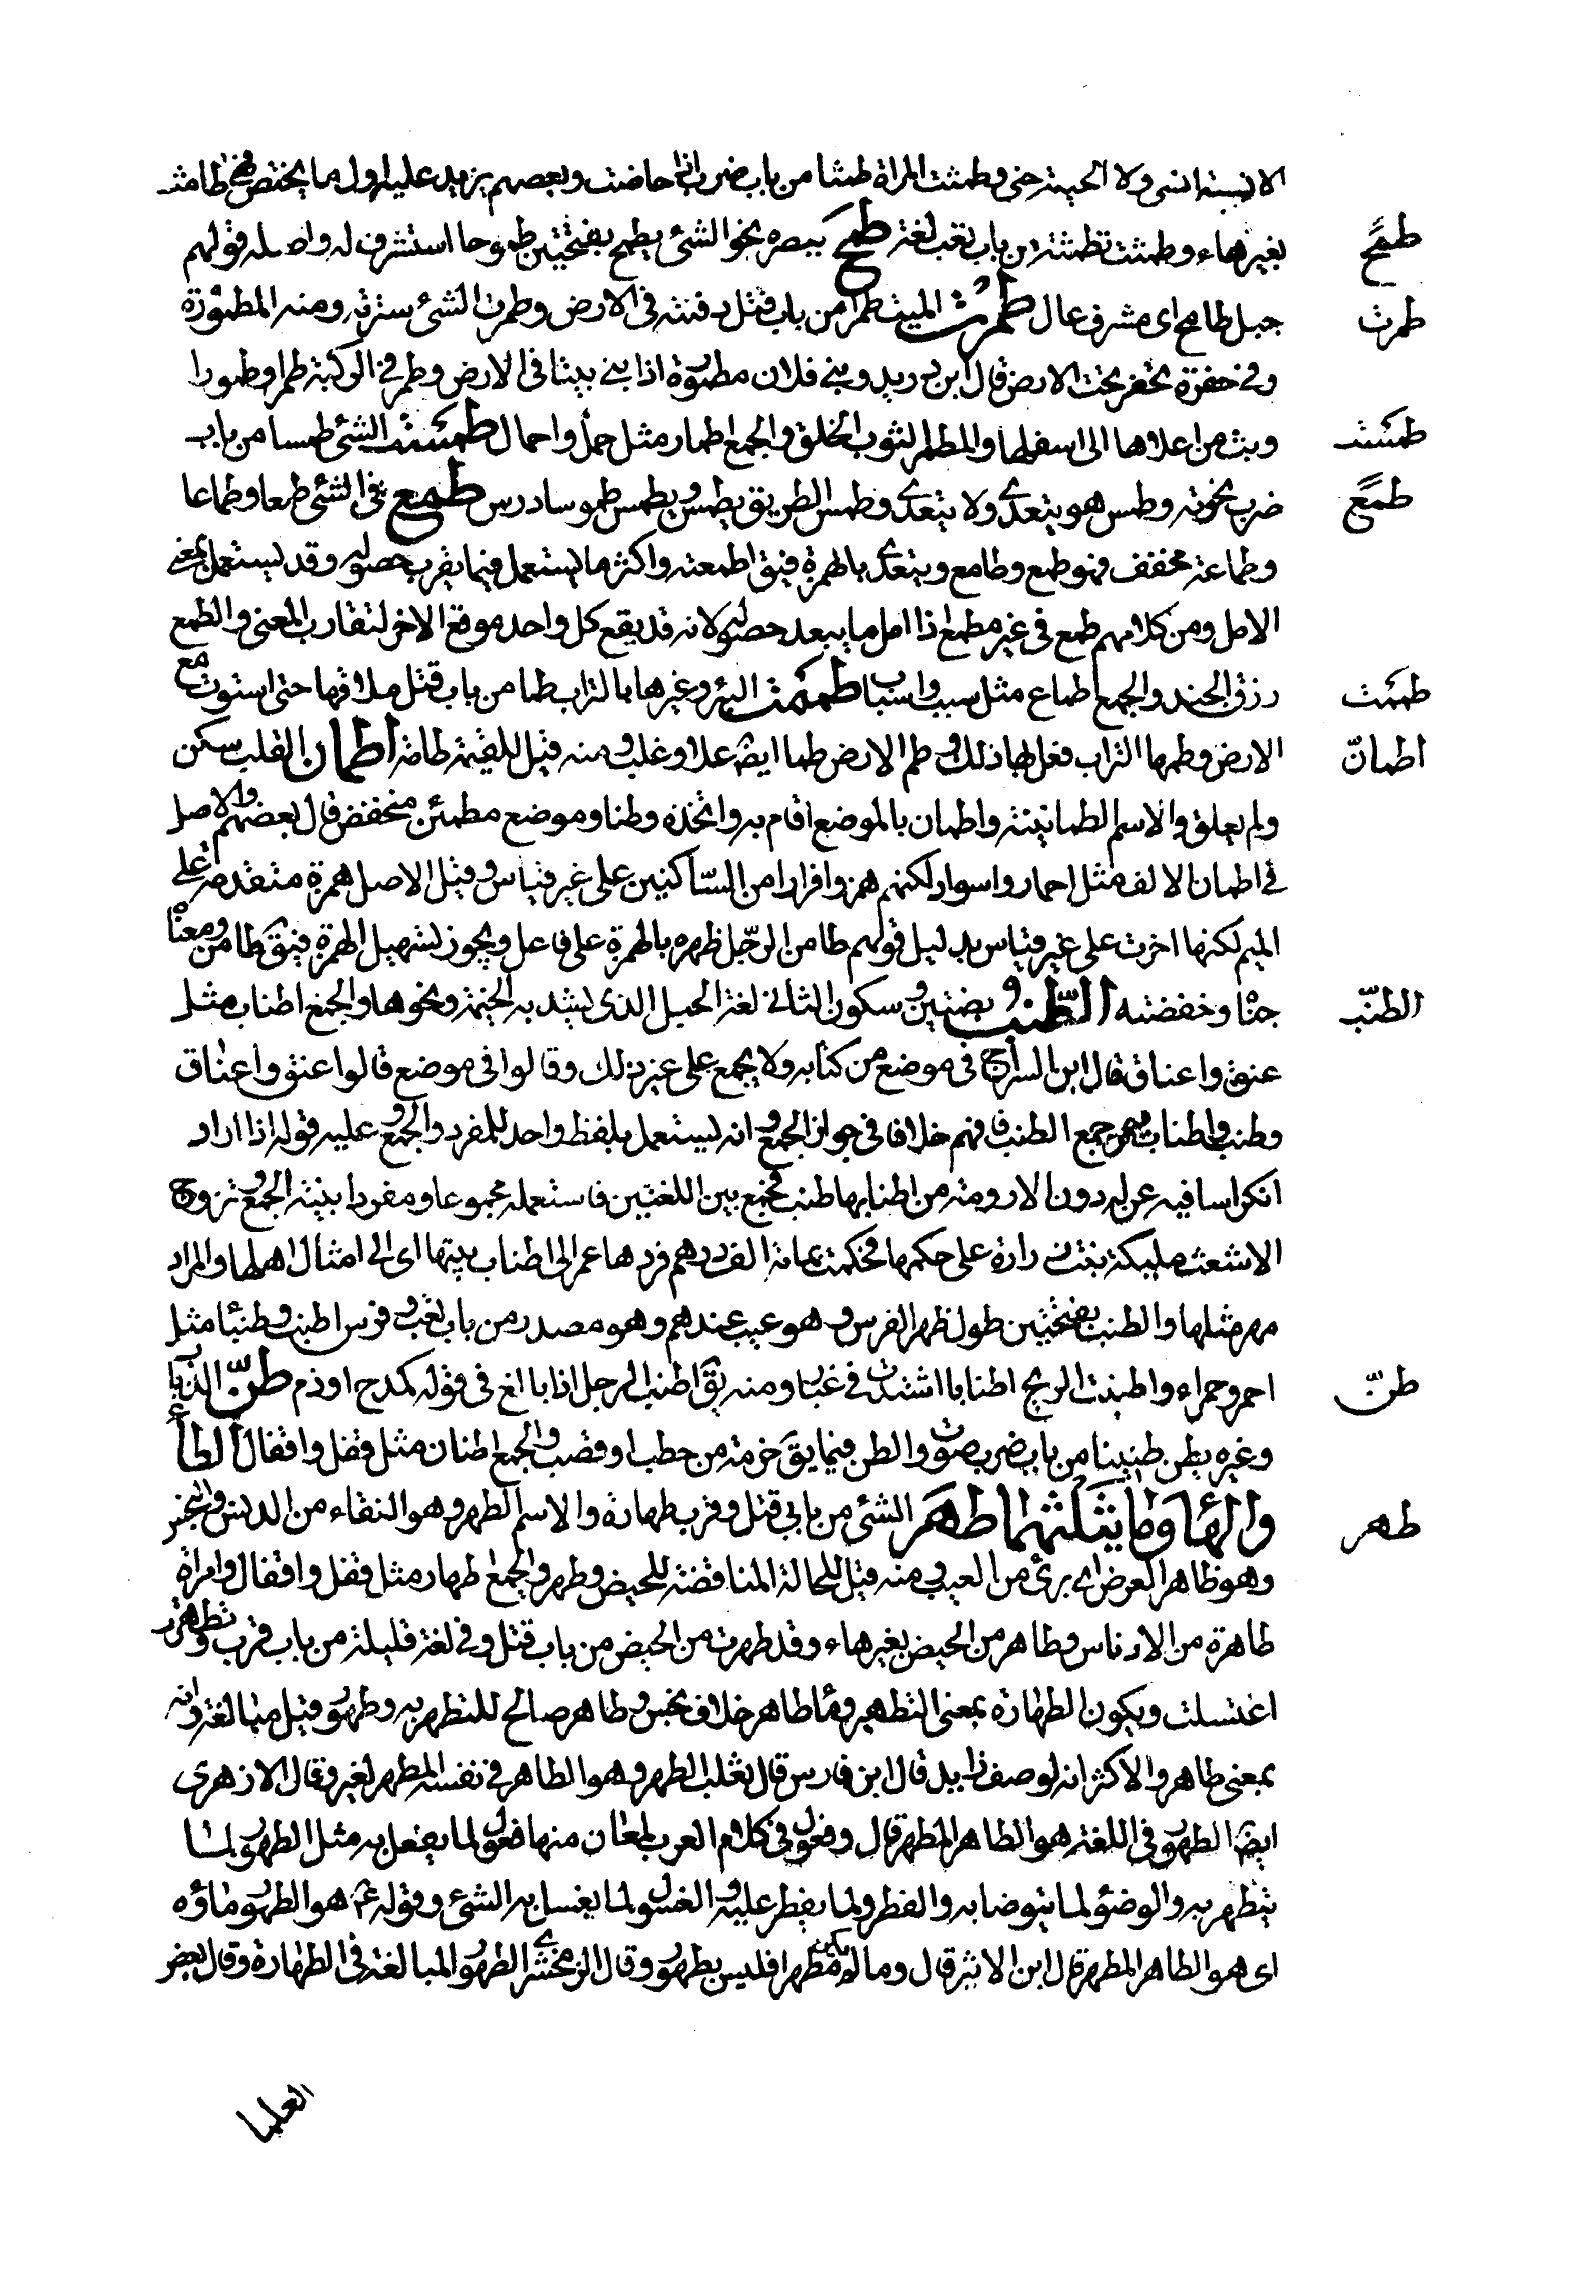 الانسية انسى ولا الجنية جنى وطمثت المراة طمثا من باب ضرب اذا حاضت وبعضهم يزيد عليه اول ما تحيض فهى طامث
طمح
بغير هاء وطمثت تطمث من باب تعب لغة طمح ببصره نحو الشئ يطمح بفتحتين طموحا استشرف له واصله قولهم
طمرت
جبل طامح اى مشرف عال طمرت الميت طمرا من باب قتل دفنته فى الارض وطمرت الشئ سترته ومنه المطمورة
وهى حفرة تحفر تحت الارض قال ابن دريد وبنى فلان مطمورة اذا بنى بيتا فى الارض وطمر فى الركية طمرا وطمورا
طمست
وثب من اعلاها الى اسفلها والطمر الثوب الخلق والجمع اطمار مثل حمل واحمال طمست الشئ طمسا من باب
طمع
ضرب محوته وطمس هو يتعدى ولا يتعدى وطمس الطريق يطمس ويطمس طموسا درس طمع فى الشئ طمعا وطماعا
وطماعية مخفف فهو طمع وطامع ويتعدى بالهمزة فيق اطمعته واكثر ما يستعمل فيما يقرب حصوله وقد يستعمل بمعنى
الامل ومن كلامهم طمع فى غير مطمع اذا امل ما يبعد حصوله لانه قد يقع كل واحد موقع الاخر لتقارب المعنى والطمع
طممت
رزق الجند والجمع اطماع مثل سبب واسباب طممت البئر وغيرها بالتراب طما من باب قتل ملاتها حتى استوت مع
اطمانّ
الارض وطمها التراب فعل بها ذلك وطم الامر طما ايضا علا وغلب ومنه قيل للقيمة طامة اطمان القلب سكن
ولم يعلق والاسم الطمانينة واطمان بالموضع اقام به واتخذه وطنا وموضع مطمئن منخفض قال بعضهم والاصل
فى اطمان الالف مثل احمار واسواد لكنهم همزوا فرارا من الساكنين على غير قياس وقيل الاصل همزة متقدمة على
الميم لكنها اخرت على غير قياس بدليل قولهم طامن الرجل ظهره بالهمزة على فاعل ويجوز تسهيل الهمزة فيق طامن ومعناه
الطنب
حناه وخفضه الطنب بضمتين وسكون الثانى لغة الحبل الذى يشد به الخيمة ونحوها والجمع اطناب مثل
عنق واعناق قال ابن السراج فى موضع من كتابه ولا يجمع على غير ذلك وقالوا فى موضع قالوا عنق واعناق
وطنب واطناب فيمن جمع الطنب فافهم خلافا فى جواز الجمع وانه يستعمل بلفظ واحد للمفرد والجمع وعليه قوله اذا اراد
انكراسا فيه عن له دون الارومة من اطنابها طنب فجمع بين اللغتين فاستعمله مجموعا ومفردا بنية الجمع وتزوج
الاشعث مليكة بنت زرارة على حكمها فحكمت بمائة الف درهم فردها عمر الى اطناب بيتها اى الى امثال اهلها والمراد
مهر مثلها والطنب بفتحتين طول ظهر الفرس وهو عيب عندهم وهو مصدر من باب تعب وفرس اطنب وطنباء مثل
طنّ
احمر وحمراء واطنبت الريح اطنابا اشتدت فى غبار ومنه يق اطنب الرجل اذا بالغ فى قوله كمدح او ذم طنّ الذباب
وغيره يطن طنينا من باب ضرب صوت والطن فيما يق حزمة من حطب او قصب والجمع اطنان مثل قفل واقفال الطاء
طهر
والهاء وما يثلثهما طهر الشئ من بابى قتل وقرب طهارة والاسم الطهر وهو النقاء من الدنس والنجس
وهو طاهر العرض اى برئ من العيب ومنه قيل للحالة المناقضة للحيض وطهر والجمع اطهار مثل قفل واقفال وامراة
طاهرة من الادناس وطاهر من الحيض بغير هاء وقد طهرت من الحيض من باب قتل وفى لغة قليلة من باب قرب وتطهرت
اغتسلت ويكون الطهارة بمعنى التطهير وماء طاهر خلاف نجس وطاهر صالح للتطهر به وطهور قيل مبالغة وانه
بمعنى طاهر والاكثر انه لوصف زايد قال ابن فارس قال ثعلب الطهور هو الطاهر فى نفسه المطهر لغيره وقال الازهرى
ايضا الطهور فى اللغة هو الطاهر المطهر قال وفعول فى كلام العرب لمعان منها فعول لما يفعل به مثل الطهور لما
يتطهر به والوضوء لما يتوضا به والفطور لما يفطر عليه والغسول لما يغسل به الشئ وقوله ع هو الطهور ماؤه
اى هو الطاهر المطهر قال ابن الاثير قال وما لم يكن مطهرا فليس بطهور وقال الزمخشرى الطهور المبالغة فى الطهارة وقال بعض
العلما